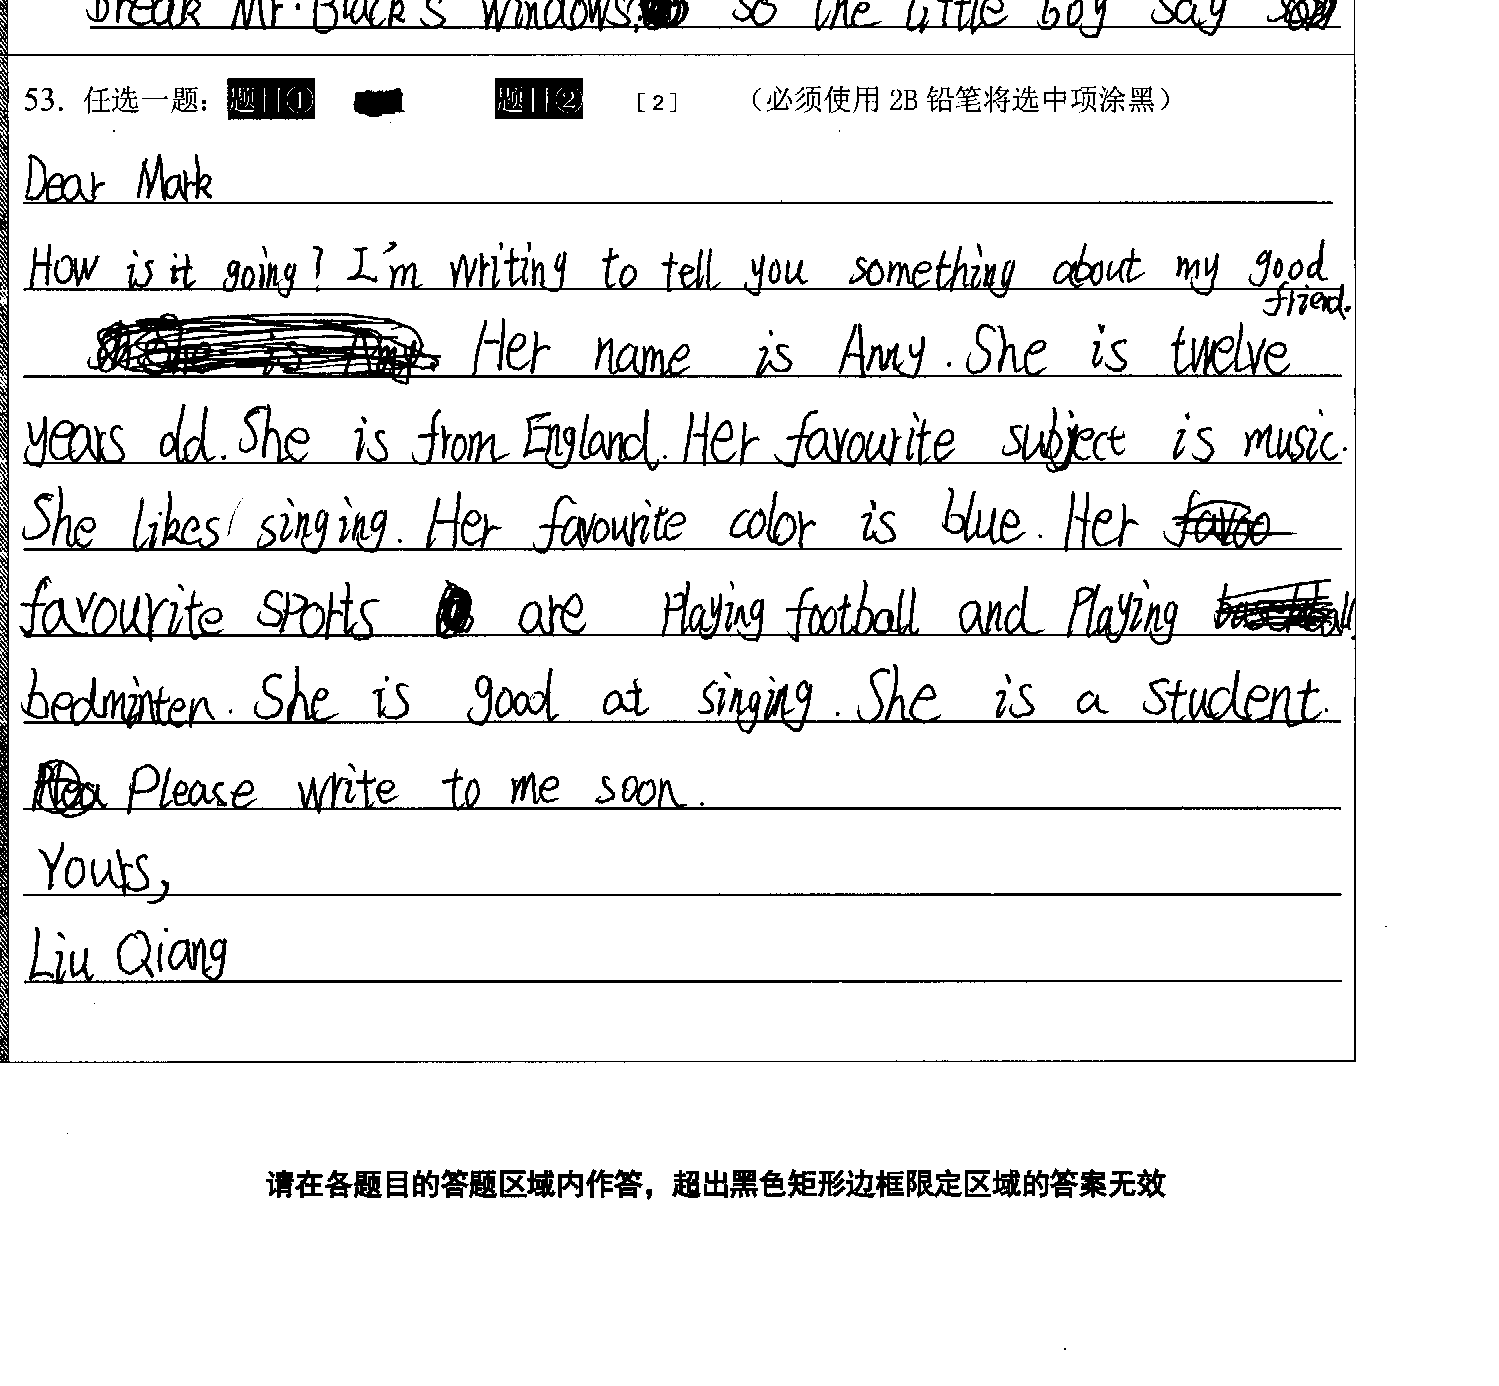 break Mr. Black's windows, so the little boy say
53. 任选一题： 题目① 题目② [2] （必须使用 2B 铅笔将选中项涂黑）
Dear Mark
How is it going? I'm writing to tell you something about my good
friend.
Her name is Amy. She is twelve
years old. She is from England. Her favourite subject is music.
She likes singing. Her favourite color is blue. Her
favourite sports are Playing football and Playing
bedminten. She is good at singing. She is a student.
Please write to me soon.
Yours,
Liu Qiang
请在各题目的答题区域内作答，超出黑色矩形边框限定区域的答案无效